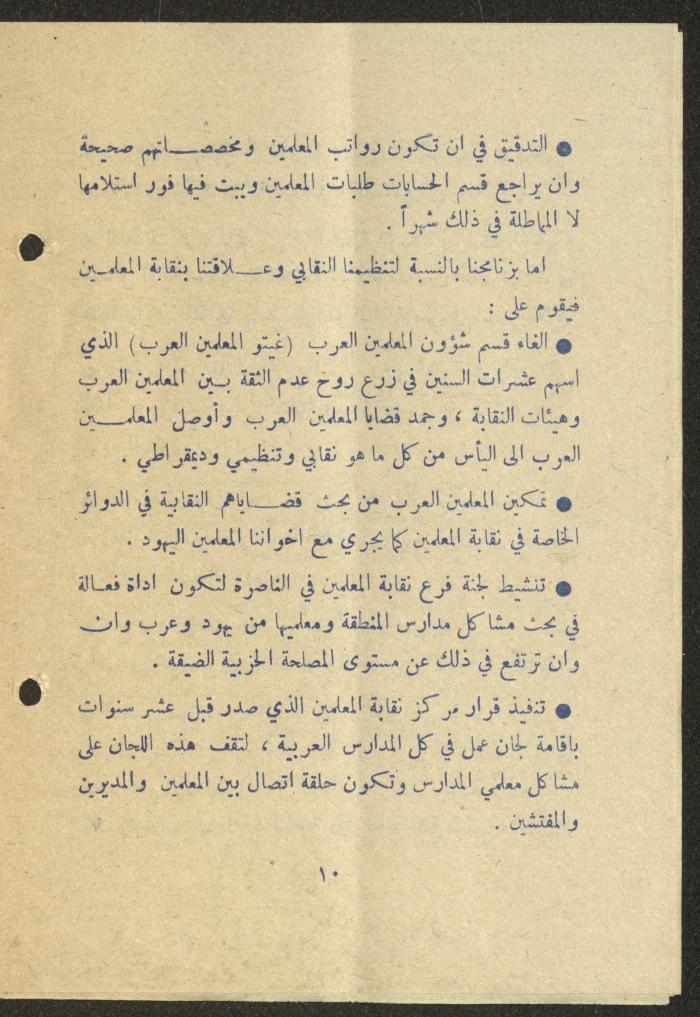 ● التدقيق في ان تكون رواتب المعلمين ومخصصاتهم صحيحة
وان يراجع قسم الحسابات طلبات المعلمين ويبت فيها فور استلامها
لا المماطلة في ذلك شهراً .
اما برنامجنا بالنسبة لتنظيمنا النقابي وعلاقتنا بنقابة المعلمين
فيقوم على :
● الغاء قسم شؤون المعلمين العرب (غيتو المعلمين العرب) الذي
اسهم عشرات السنين في زرع روح عدم الثقة بين المعلمين العرب
وهيئات النقابة ، وجمد قضايا المعلمين العرب وأوصل المعلمين
العرب الى اليأس من كل ما هو نقابي وتنظيمي وديمقراطي .
● تمكين المعلمين العرب من بحث قضاياهم النقابية في الدوائر
الخاصة في نقابة المعلمين كما يجري مع اخواننا المعلمين اليهود .
● تنشيط لجنة فرع نقابة المعلمين في الناصرة لتكون اداة فعالة
في بحث مشاكل مدارس المنطقة ومعلميها من يهود وعرب وان
وان ترتفع في ذلك عن مستوى المصلحة الحزبية الضيقة .
● تنفيذ قرار مركز نقابة المعلمين الذي صدر قبل عشر سنوات
باقامة لجان عمل في كل المدارس العربية ، لتقف هذه اللجان على
مشاكل معلمي المدارس وتكون حلقة اتصال بين المعلمين والمديرين
والمفتشين .
١٠